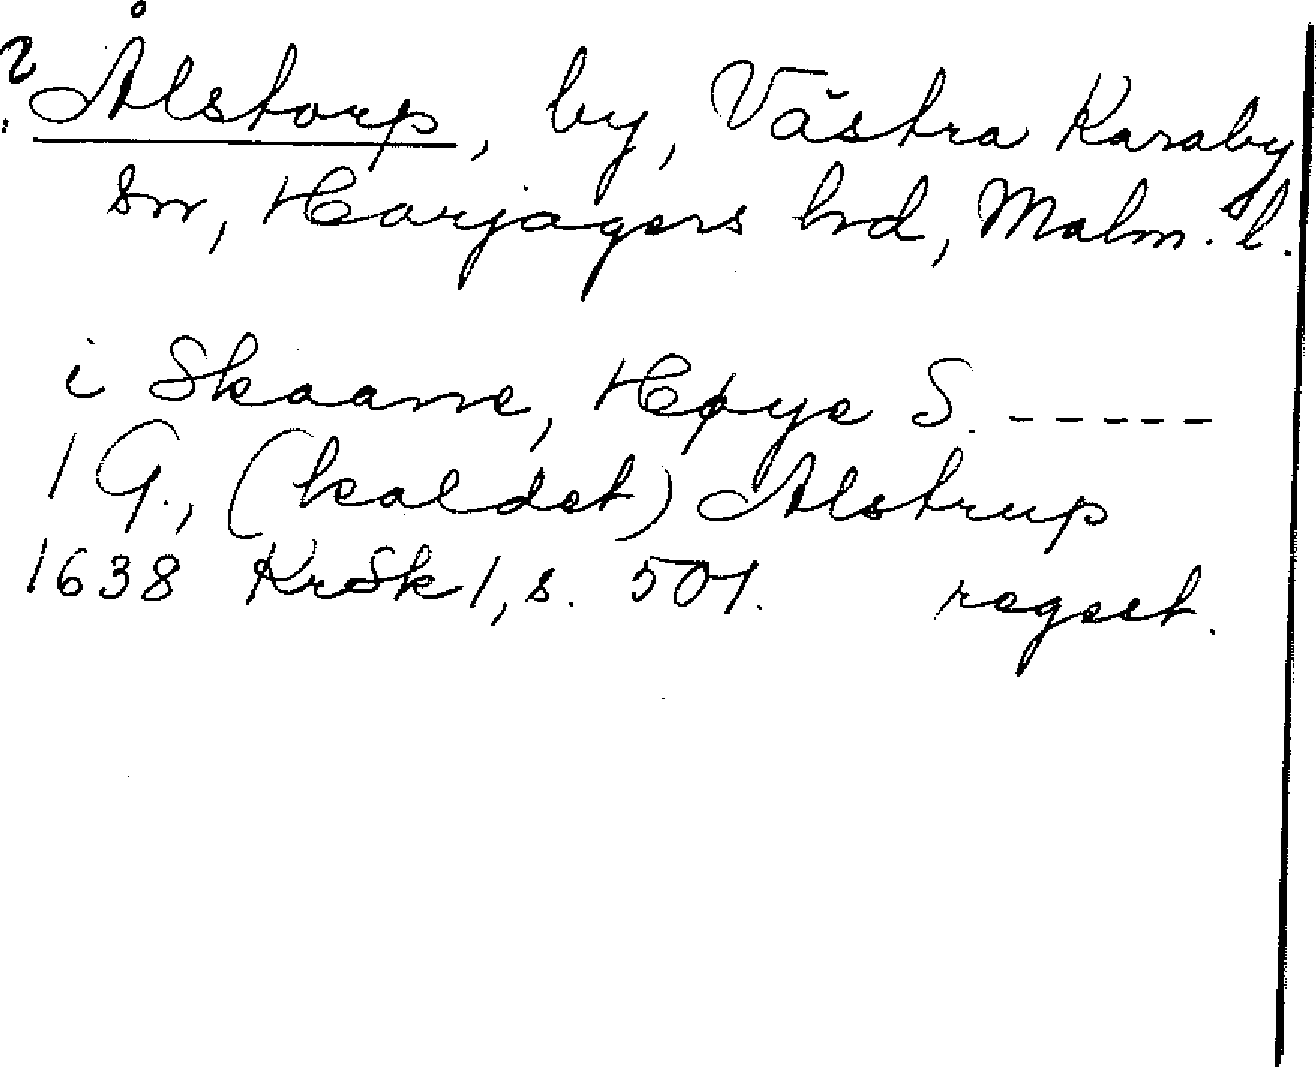 ? Ålstorp, by, Västra Karaby
sn, Harjagers hd, Malm. l.
i Skaane, Høye S. -----
1 G., (kaldet) Alstrup
1638 KrSk 1, s. 501. regest.